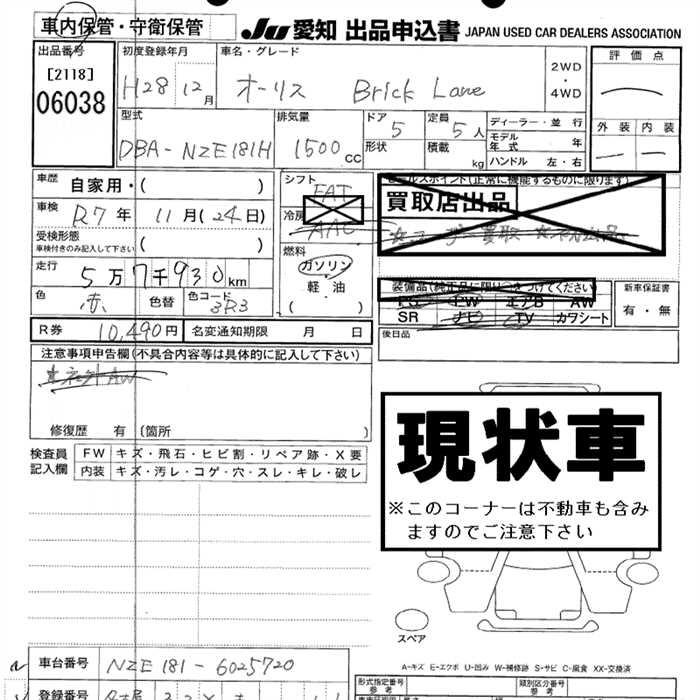 車内保管・守衛保管
JU 愛知 出品申込書 JAPAN USED CAR DEALERS ASSOCIATION
出品番号
[2118]
06038
初度登録年月
H28 12月
車名・グレード
オーリス Brick Lane
2WD
・
4WD
評価点
外装 内装
型式
DBA-NZE181H
排気量
1500cc
ドア 5
形状
定員 5人
積載 kg
ディーラー・並行
モデル年式 年
ハンドル 左・右
車歴 自家用・( )
車検 R7年 11月(24日)
受検形態
車検付きのみ記入して下さい ( )
走行 5万7千930km
色 赤 色替 色コード 3R3
シフト FAT
冷房 AAC
燃料
ガソリン
・
軽油
( )
セールスポイント(正常に機能するものに限ります)
買取店出品
装備品(純正品に限り○をつけてください)
PS PW エアB AW
SR ナビ TV カワシート
新車保証書
有・無
R券 10,490円 名変通知期限 月 日
後日品
注意事項申告欄(不具合内容等は具体的に記入して下さい)
修復歴 有 〔箇所 〕
検査員記入欄
FW キズ・飛石・ヒビ割・リペア跡・X要
内装 キズ・汚レ・コゲ・穴・スレ・キレ・破レ
現状車
※このコーナーは不動車も含み
ますのでご注意下さい
スペア
A-キズ E-エクボ U-凹み W-補修跡 S-サビ C-腐食 XX-交換済
車台番号 NZE181-6025720
登録番号
形式指定番号
参考
類別区分番号
参考